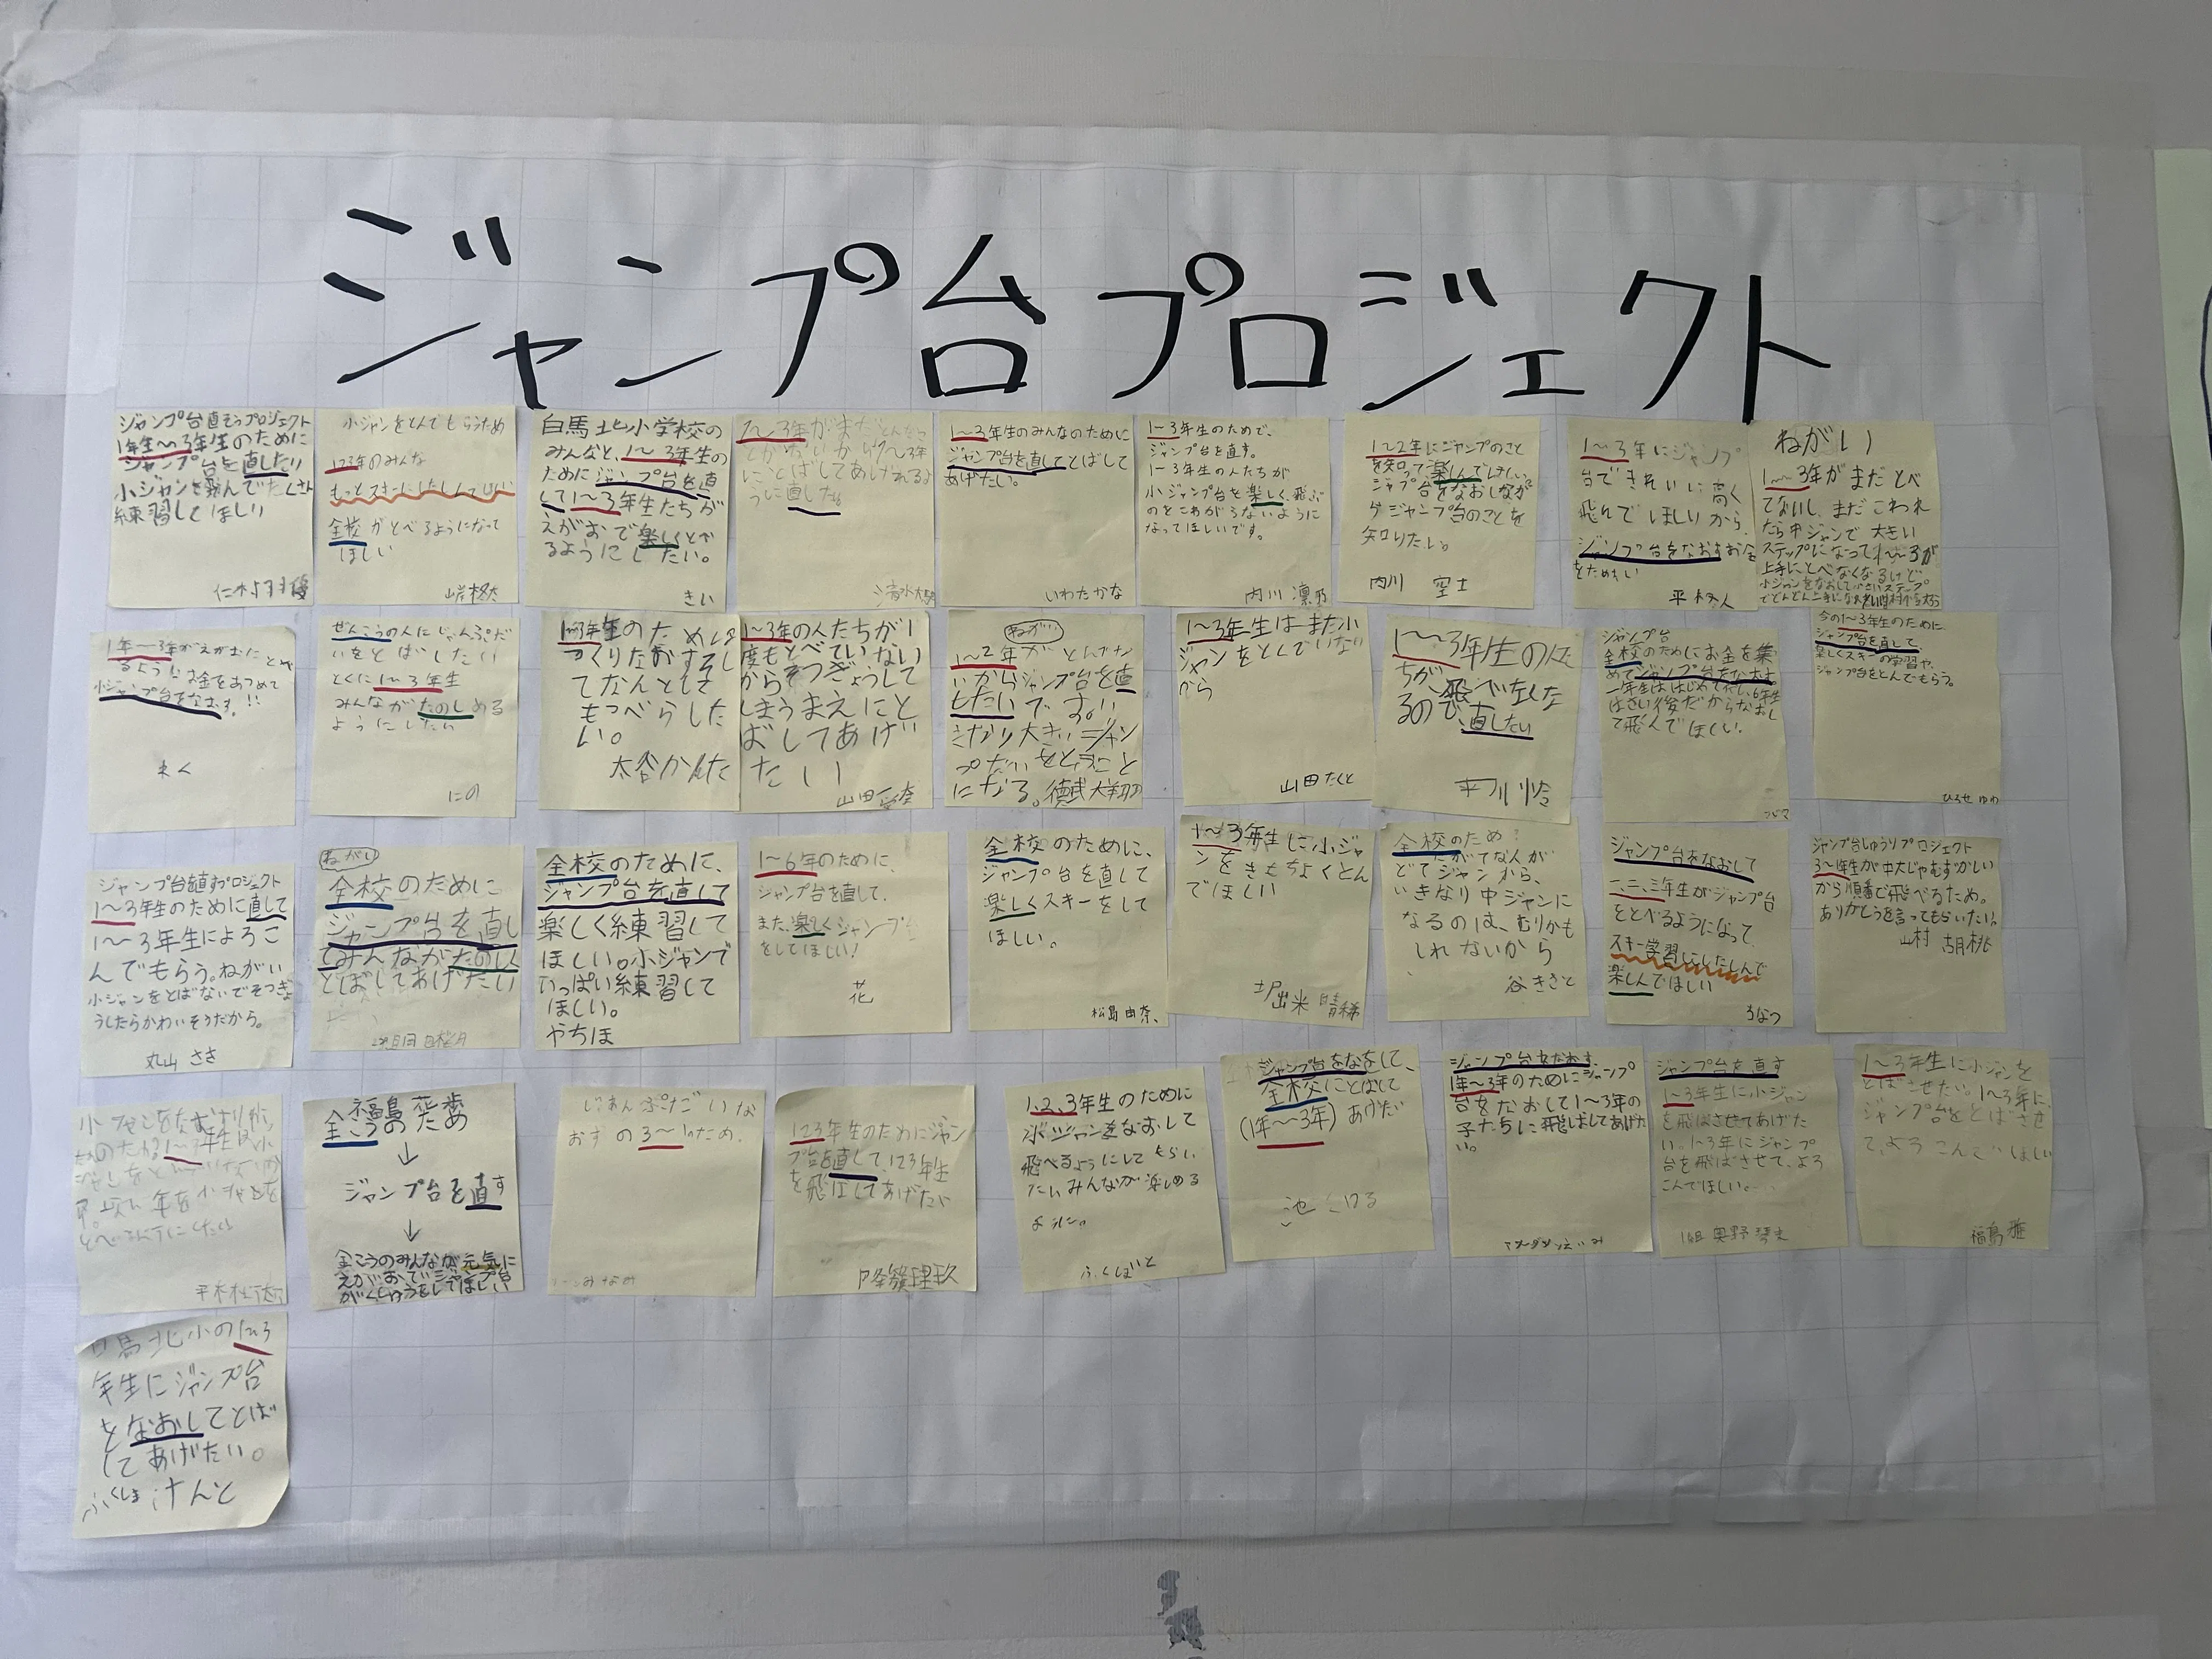 ジャンプ台プロジェクト
ジャンプ台直そうプロジェクト
1年生〜3年生のために
ジャンプ台を直したい
小ジャンを飛んでたくさん
練習してほしい
小ジャンをとんでもらうため
123年のみんな
もっとスキーにしたしんでほしい
全校がとべるようになって
ほしい
白馬北小学校の
みんなと、1〜3年生の
ためにジャンプ台を直
して1〜3年生たちが
えがおで楽しくとべ
るようにしたい。
きい
1〜3年がまだとんだこ
とがないから1〜3年
にとばしてあげれるよ
うに直したい。
1〜3年生のみんなのために
ジャンプ台を直してとばして
あげたい。
いわたかな
1〜3年生のためで、
ジャンプ台を直す。
1〜3年生の人たちが
小ジャンプ台を楽しく、飛ぶ
のをこわがらないように
なってほしいです。
内川 凛乃
1〜2年にジャンプのこと
を知って楽しんでほしい。
ジャンプ台をなおしなが
らジャンプ台のことを
知りたい。
内川 空士
1〜3年にジャンプ
台できれいに高く
飛んでほしいから、
ジャンプ台をなおすお金
をためたい
ねがい
1〜3年がまだとべ
てないし、まだこわれ
たら中ジャンで大きい
ステップになって1〜3が
上手にとべなくなるけど
小ジャンをなおして小さいステップ
1年〜3年がえがおにとべ
るようにお金をあつめて
小ジャンプ台をなおす。!!
れく
ぜんこうの人にじゃんぷだ
いをとばしたい
とくに1〜3年生
みんながたのしめる
ようにしたい
にの
1〜3年生のために
つくりなおす。そし
てなんとして
もすべらした
い。
太谷かんた
1〜3年の人たちが1
度もとべていない
からそつぎょうして
しまうまえにと
ばしてあげ
たい
ねがい
1〜2年がとんでな
いからジャンプ台を直
したいです。い
きなり大きいジャン
プだいをとぶこと
になる。
1〜3年生はまだ小
ジャンをとんでいない
から
山田たくと
1〜3年生の人た
ちが、飛べなくな
るので、直したい
ジャンプ台
全校のためにお金を集
めてジャンプ台をなおす。
一年生ははじめてだし、6年生
はさい後だからなおし
て飛んでほしい。
今の1〜3年生のために
ジャンプ台を直して、
楽しくスキーの学習や、
ジャンプ台をとんでもらう。
ひろせ ゆわ
ジャンプ台を直すプロジェクト
1〜3年生のために直して
1〜3年生によろこ
んでもらう。ねがい
小ジャンをとばないでそつぎょ
うしたらかわいそうだから。
丸山 さき
ねがい
全校のために
ジャンプ台を直し
てみんながたのしく
とばしてあげたい
全校のために、
ジャンプ台を直して
楽しく練習して
ほしい。小ジャンで
いっぱい練習して
ほしい。
やちほ
1〜6年のために、
ジャンプ台を直して、
また、楽しくジャンプ
をしてほしい!
花
全校のために、
ジャンプ台を直して
楽しくスキーをして
ほしい。
松島由奈、
1〜3年生に小ジャ
ンをきもちよくとん
でほしい
全校のため
にがてな人が
でてジャンから、
いきなり中ジャンに
なるのは、むりかも
しれないから
谷ききと
ジャンプ台をなおして
一、二、三年生がジャンプ台
をとべるようになって、
スキー学習にしたしんで
楽しんでほしい
ジャンプ台しゅうりプロジェクト
3〜1年生が中大じゃむずかしい
から順番で飛べるため。
ありがとうを言ってもらいたい。
山村 胡桃
福島花歩
全こうのため
↓
ジャンプ台を直す
↓
全こうのみんなが元気に
えがおでジャンプ台
がくしゅうをしてほしい
じゃんぷだいな
おすの3〜1のため、
123年生のためにジャン
プ台を直して、123年生
を飛ばしてあげたい
1、2、3年生のために
小ジャンをなおして
飛べるようにしてもらい
たい。みんなが楽しめる
ように。
ふくしばいと
ジャンプ台をなをして、
全校にとばして
(1年〜3年)あげたい
ジャンプ台をなおす。
1年〜3年のためにジャンプ
台をなおして1〜3年の
子たちに飛ばしてあげた
い。
ジャンプ台を直す
1〜3年生に小ジャン
を飛ばさせてあげた
い。1〜3年にジャンプ
台を飛ばさせて、よろ
こんでほしい。
1組 奥野
1〜3年生に小ジャンを
とばさせたい。1〜3年に、
ジャンプ台をとばさせ
て、よろこんでほしい
福島 雅
白馬北小の1〜3
年生にジャンプ台
をなおしてとば
してあげたい。
ふくしまけんと